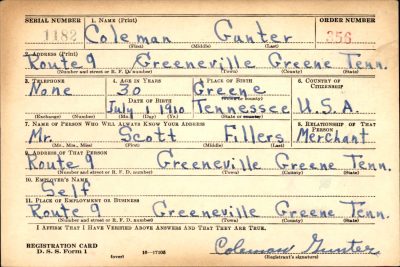 SERIAL NUMBER 1. NAME (Print) ORDER NUMBER
1182 Coleman Gunter 356
(First) (Middle) (Last)
2. ADDRESS (Print)
Route 9 Greeneville Greene Tenn.
(Number and street or R. F. D. number) (Town) (County) (State)
3. TELEPHONE 4. AGE IN YEARS 5. PLACE OF BIRTH 6. COUNTRY OF CITIZENSHIP
None 30 Greene
DATE OF BIRTH (Town or county)
July 1 1910 Tennessee U.S.A
(Exchange) (Number) (Mo.) (Day) (Yr.) (State or country)
7. NAME OF PERSON WHO WILL ALWAYS KNOW YOUR ADDRESS 8. RELATIONSHIP OF THAT PERSON
Mr. Scott Fillers Merchant
(Mr., Mrs., Miss) (First) (Middle) (Last)
9. ADDRESS OF THAT PERSON
Route 9 Greeneville Greene Tenn.
(Number and street or R. F. D. number) (Town) (County) (State)
10. EMPLOYER'S NAME
Self
11. PLACE OF EMPLOYMENT OR BUSINESS
Route 9 Greeneville Greene Tenn.
(Number and street or R. F. D. number) (Town) (County) (State)
I AFFIRM THAT I HAVE VERIFIED ABOVE ANSWERS AND THAT THEY ARE TRUE.
REGISTRATION CARD
D. S. S. Form 1 (over) 16—17105 Coleman Gunter
(Registrant's signature)